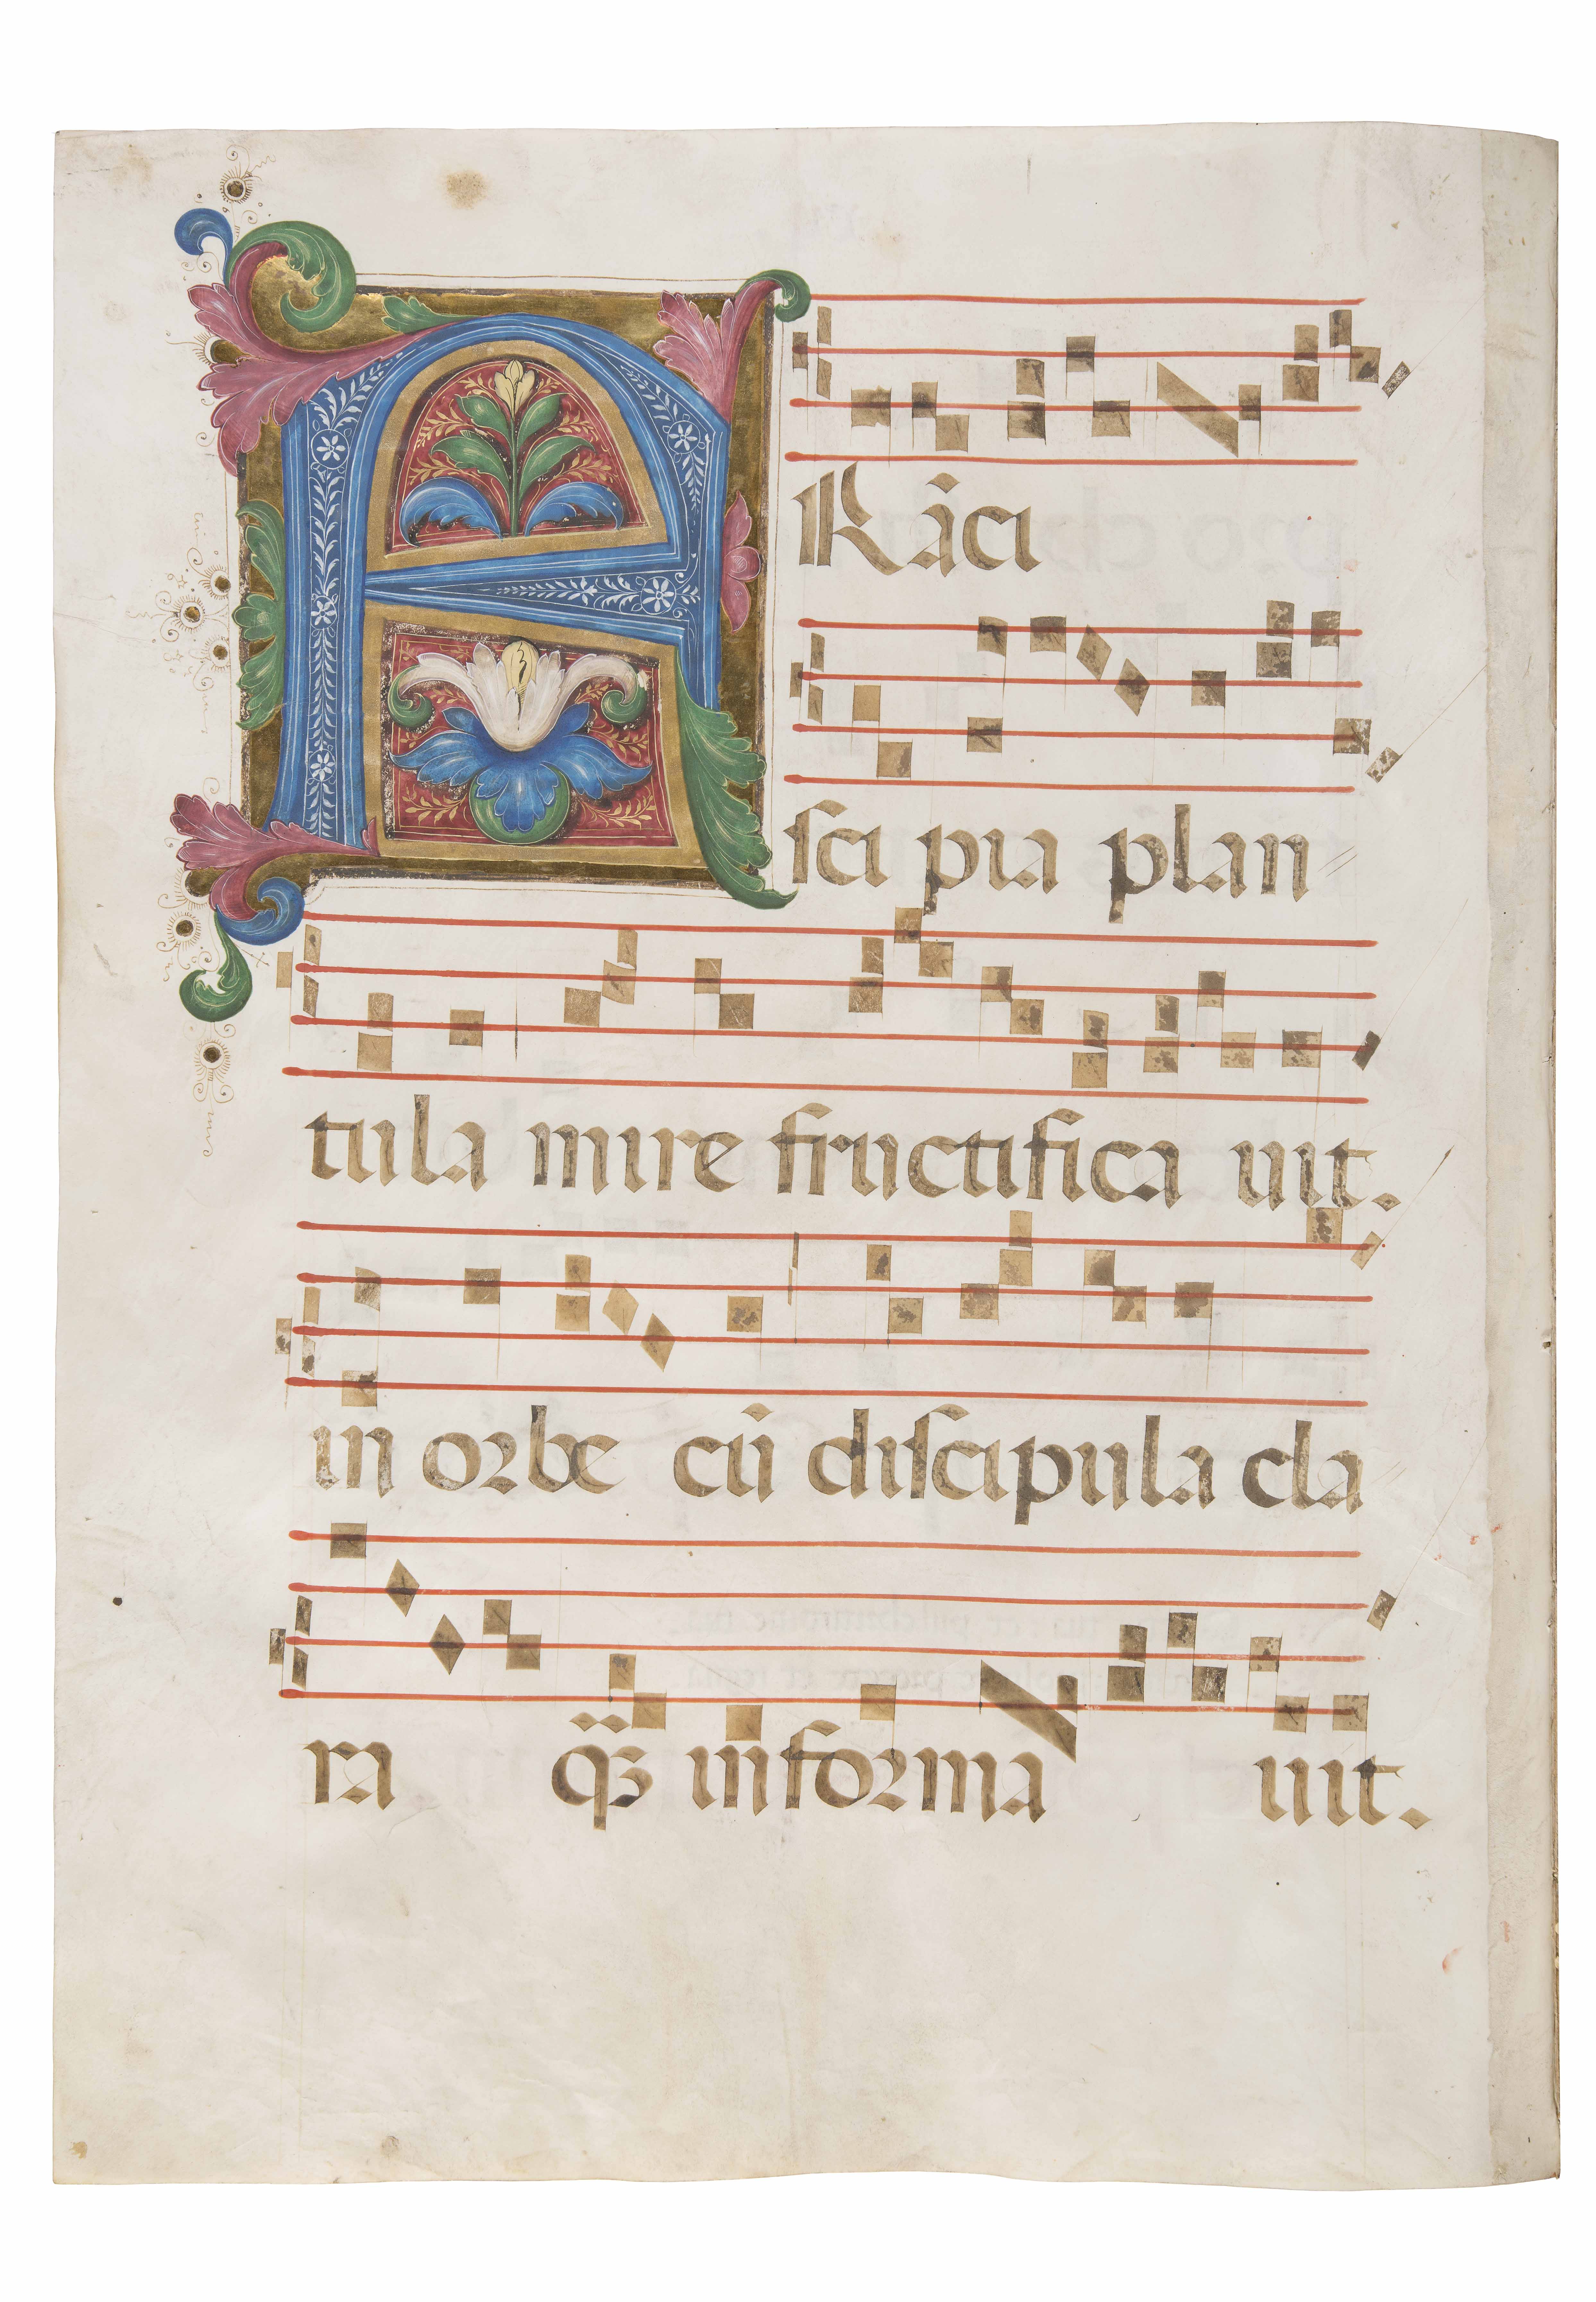 FRāci
ſci pia plan⸗
tula mire fructifica uit.
in orbe cū diſcipula cla⸗
ra q̃ꝫ informa uit.